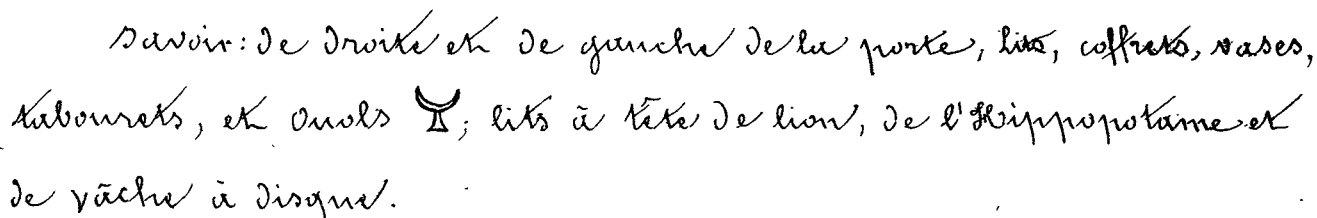 savoir: de droite et de gauche de la porte, lits, coffrets, vases,
tabourets, et ouols ; lits à tête de lion, de l'Hippopotame et
de vâche à disque.